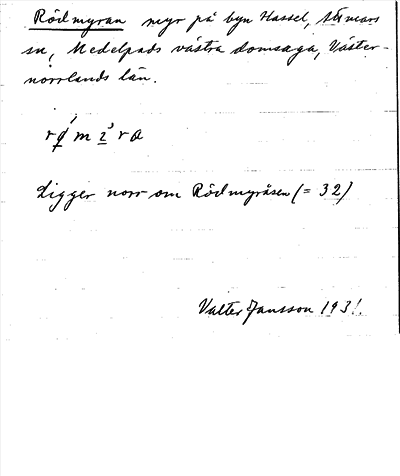 Rödmyran myr på byn Hassel, Stömars
sn, Medelpads västra domsaga, Väster-
norrlands län.
Ligger norr om Rödmyråsen (= 32)
Valter Jansson 1931.